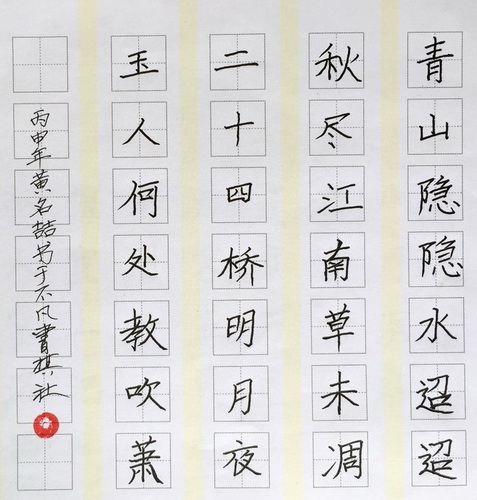 青山隐隐水迢迢
秋尽江南草未凋
二十四桥明月夜
玉人何处教吹萧
丙申年黄名喆书于不凡書棋社